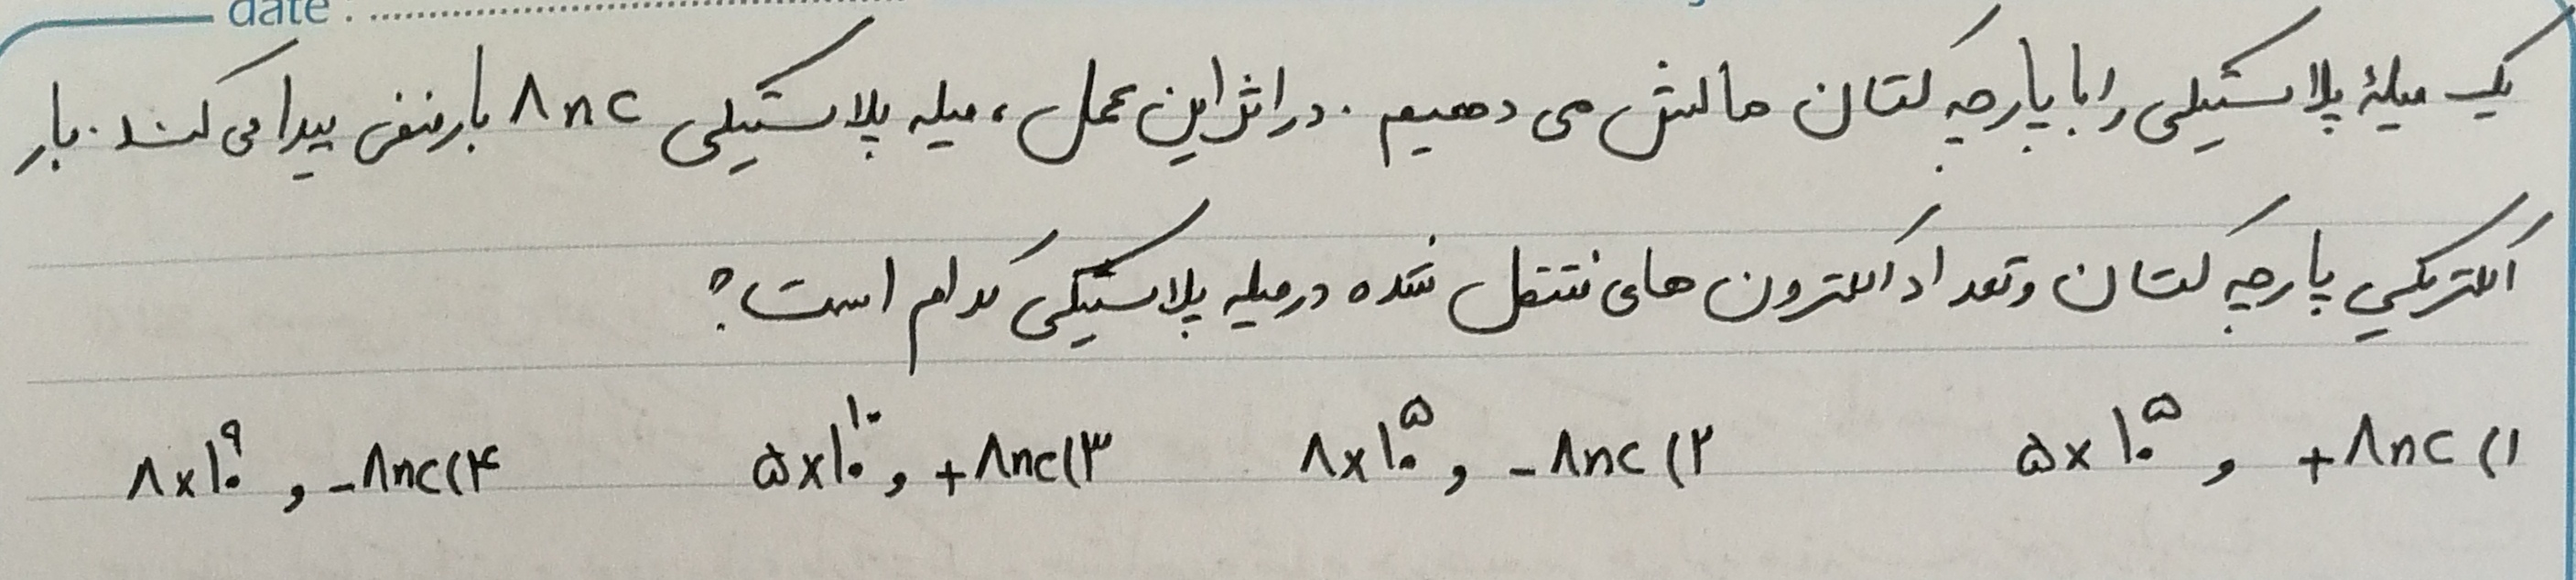 date :
یک میلهٔ پلاستیکی را با پارچه کتان مالش می دهیم . در اثر این عمل ، میله پلاستیکی ۸nc بار منفی پیدا می کند . بار
الکتریکی پارچه کتان و تعداد الکترون های منتقل شده در میله پلاستیکی کدام است ؟
۱) +۸nc و ۵×۱۰^۵ ۲) -۸nc و ۸×۱۰^۵ ۳) +۸nc و ۵×۱۰^۱۰ ۴) -۸nc و ۸×۱۰^۹